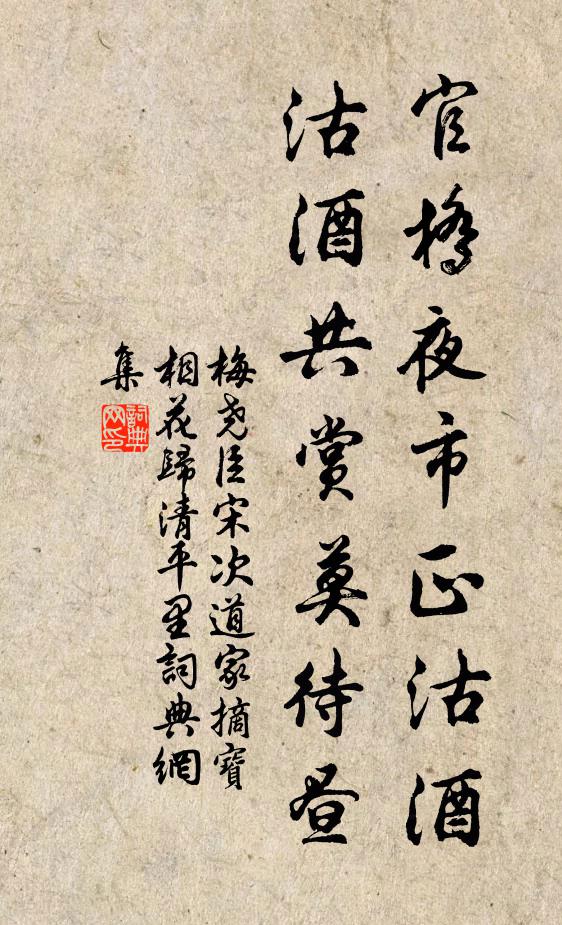 官橋夜市正沽酒
沽酒共賞莫待昼
梅尧臣宋次道家摘寶
相花歸清平里詞典網
集
詞典
网印